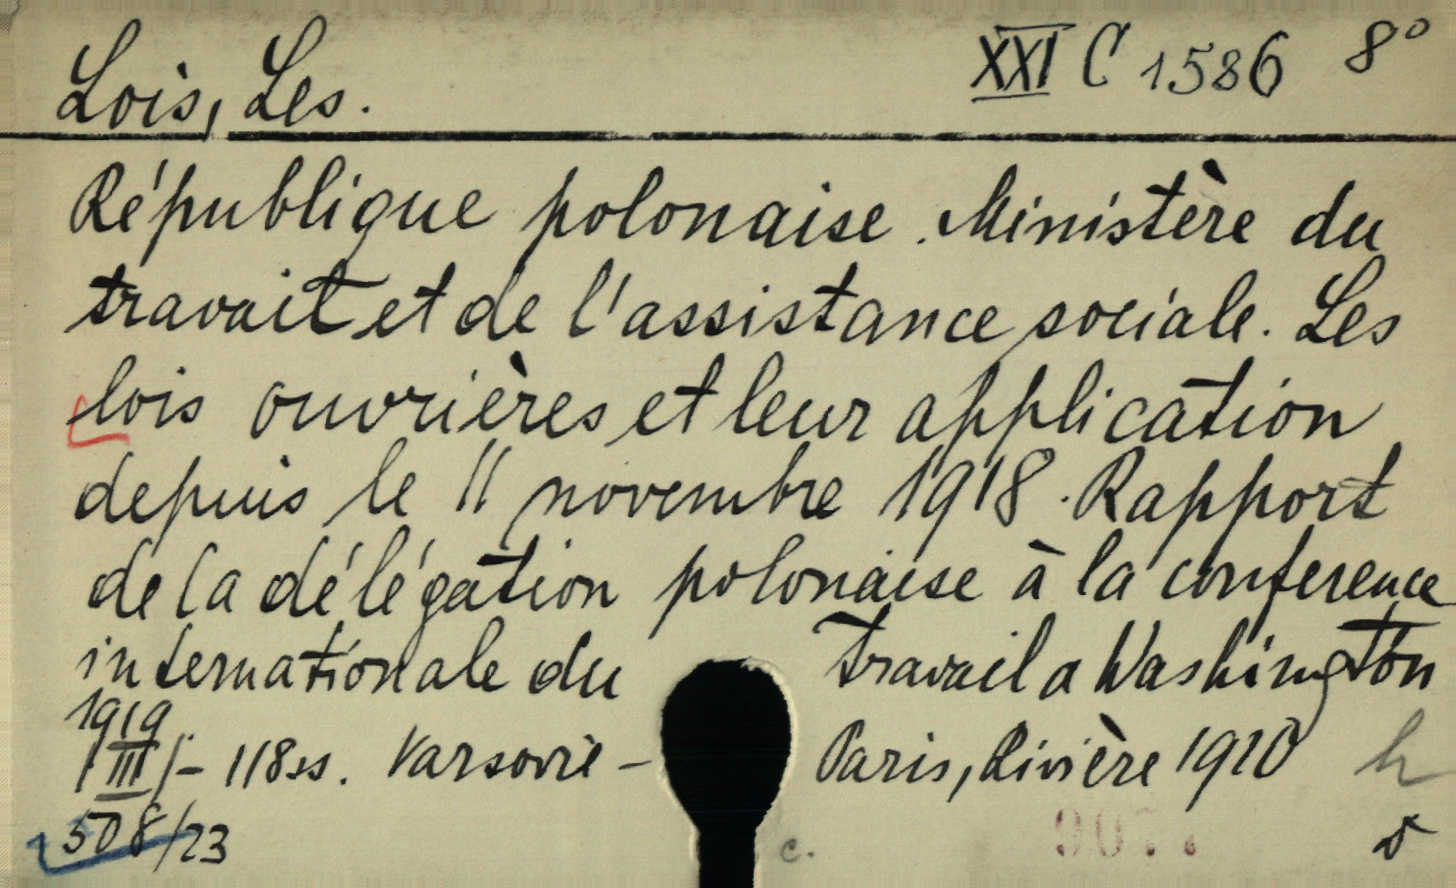 Lois, Les. XXI C 1586 8°
République polonaise. Ministère du
travail et de l'assistance sociale. Les
lois ouvrières et leur application
depuis le 11 novembre 1918. Rapport
de la délégation polonaise à la conference
internationale du travail a Washington
1919.
/III/ - 118 ss. Varsovie - Paris, Rivière 1910
508/23 c.